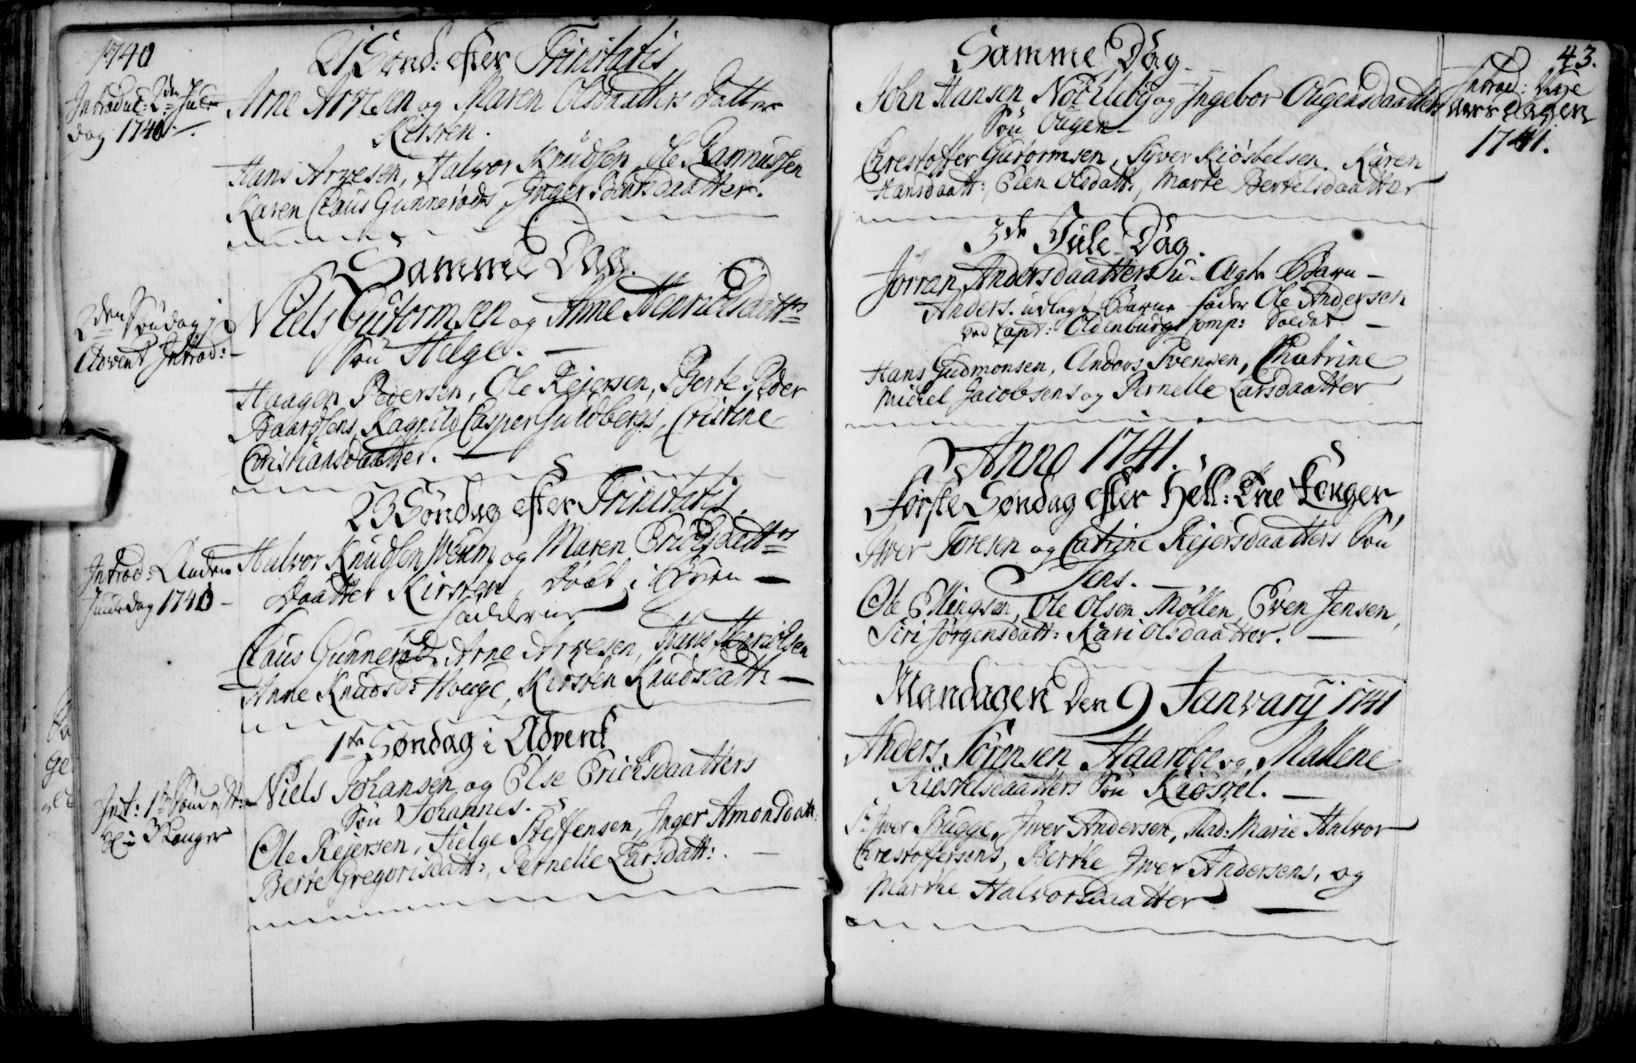 1740
21 Sønd: efter Trinitatis
Introduc: 2den Jule
dag 1740.
Arne Arvesen og Maren Olsdaatters Datter
Kirsten.
Hans Arvesen, Halvor Knudsen, Ole Rasmussen
Karen Claus Gunnerøds, Inger Bentsdaatter.
Samme Dag.
2den Søndag i
Advent Introd:
Niels Gutormsen og Anne Henrichsdattrs
Søn Helge.
Haagen Pedersen, Ole Rejersen, Berte Peder
Baardsens, Ragnild Casper Guldbergs, Cristine
Christiansdaatter.
23 Søndag efter Trinitatis.
Introd: Anden
Juuledag 1740
Halvor Knudsen og Maren Erichsdattrs
Daatter Kirsten Døbt i Byen
Fadderne
Claus Gunnerød, Arne Arvesen, Hans Henrichsen
Anne Knudsd: Houge, Kirsten Knudsdatt:
1ste Søndag i Advent
Int: 1ste Sønd
Konger
Niels Johansen og Else Erichsdaatters
Søn Johannes.
Ole Rejersen, Helge Steffensen, Inger Amonsdatt:
Berte Gregorisdatt:, Pernelle Larsdatt:
43.
Samme Dag
Introd: Nye
Aars dagen
1741.
John Hansen Nochleby og Ingebor Ougensdaatters
Søn Ougen
Chrestoffer Gutormsen, Syver Kiøstelsen, Karen
Hansdaatt:, Elen Olsdatt:, Marte Bertelsdaatter
3de Jule Dag.
Jørran Andersdaatters U-Ægte Barn
Anders. udlagt Barne fader Ole Andersen
ved Capt: Oldenburgs Comp: Soldat
Hans Gudmonsen, Anders Svensen, Chatrine
Michel Jacobsens og Pernelle Larsdaatter
Anno 1741.
Første Søndag efter Hell: Tre Konger
Iver Toresen og Catrine Rejersdaatters Søn
Jens.
Ole Ellingsen, Ole Olsen Møllen, Even Jensen,
Siri Jørgensdatt: Kari Olsdaatter.
Mandagen Den 9 Janvarij 1741
Anders Sørensen Haarboe og Mallene
Kiøstelsdaatters Søn Kiøstel.
Sr Iver Bugge, Iver Andersen, Mad: Marie Halvor
Chrestoffersens, Berthe Iver Andersens, og
Marthe Halvorsdaatter